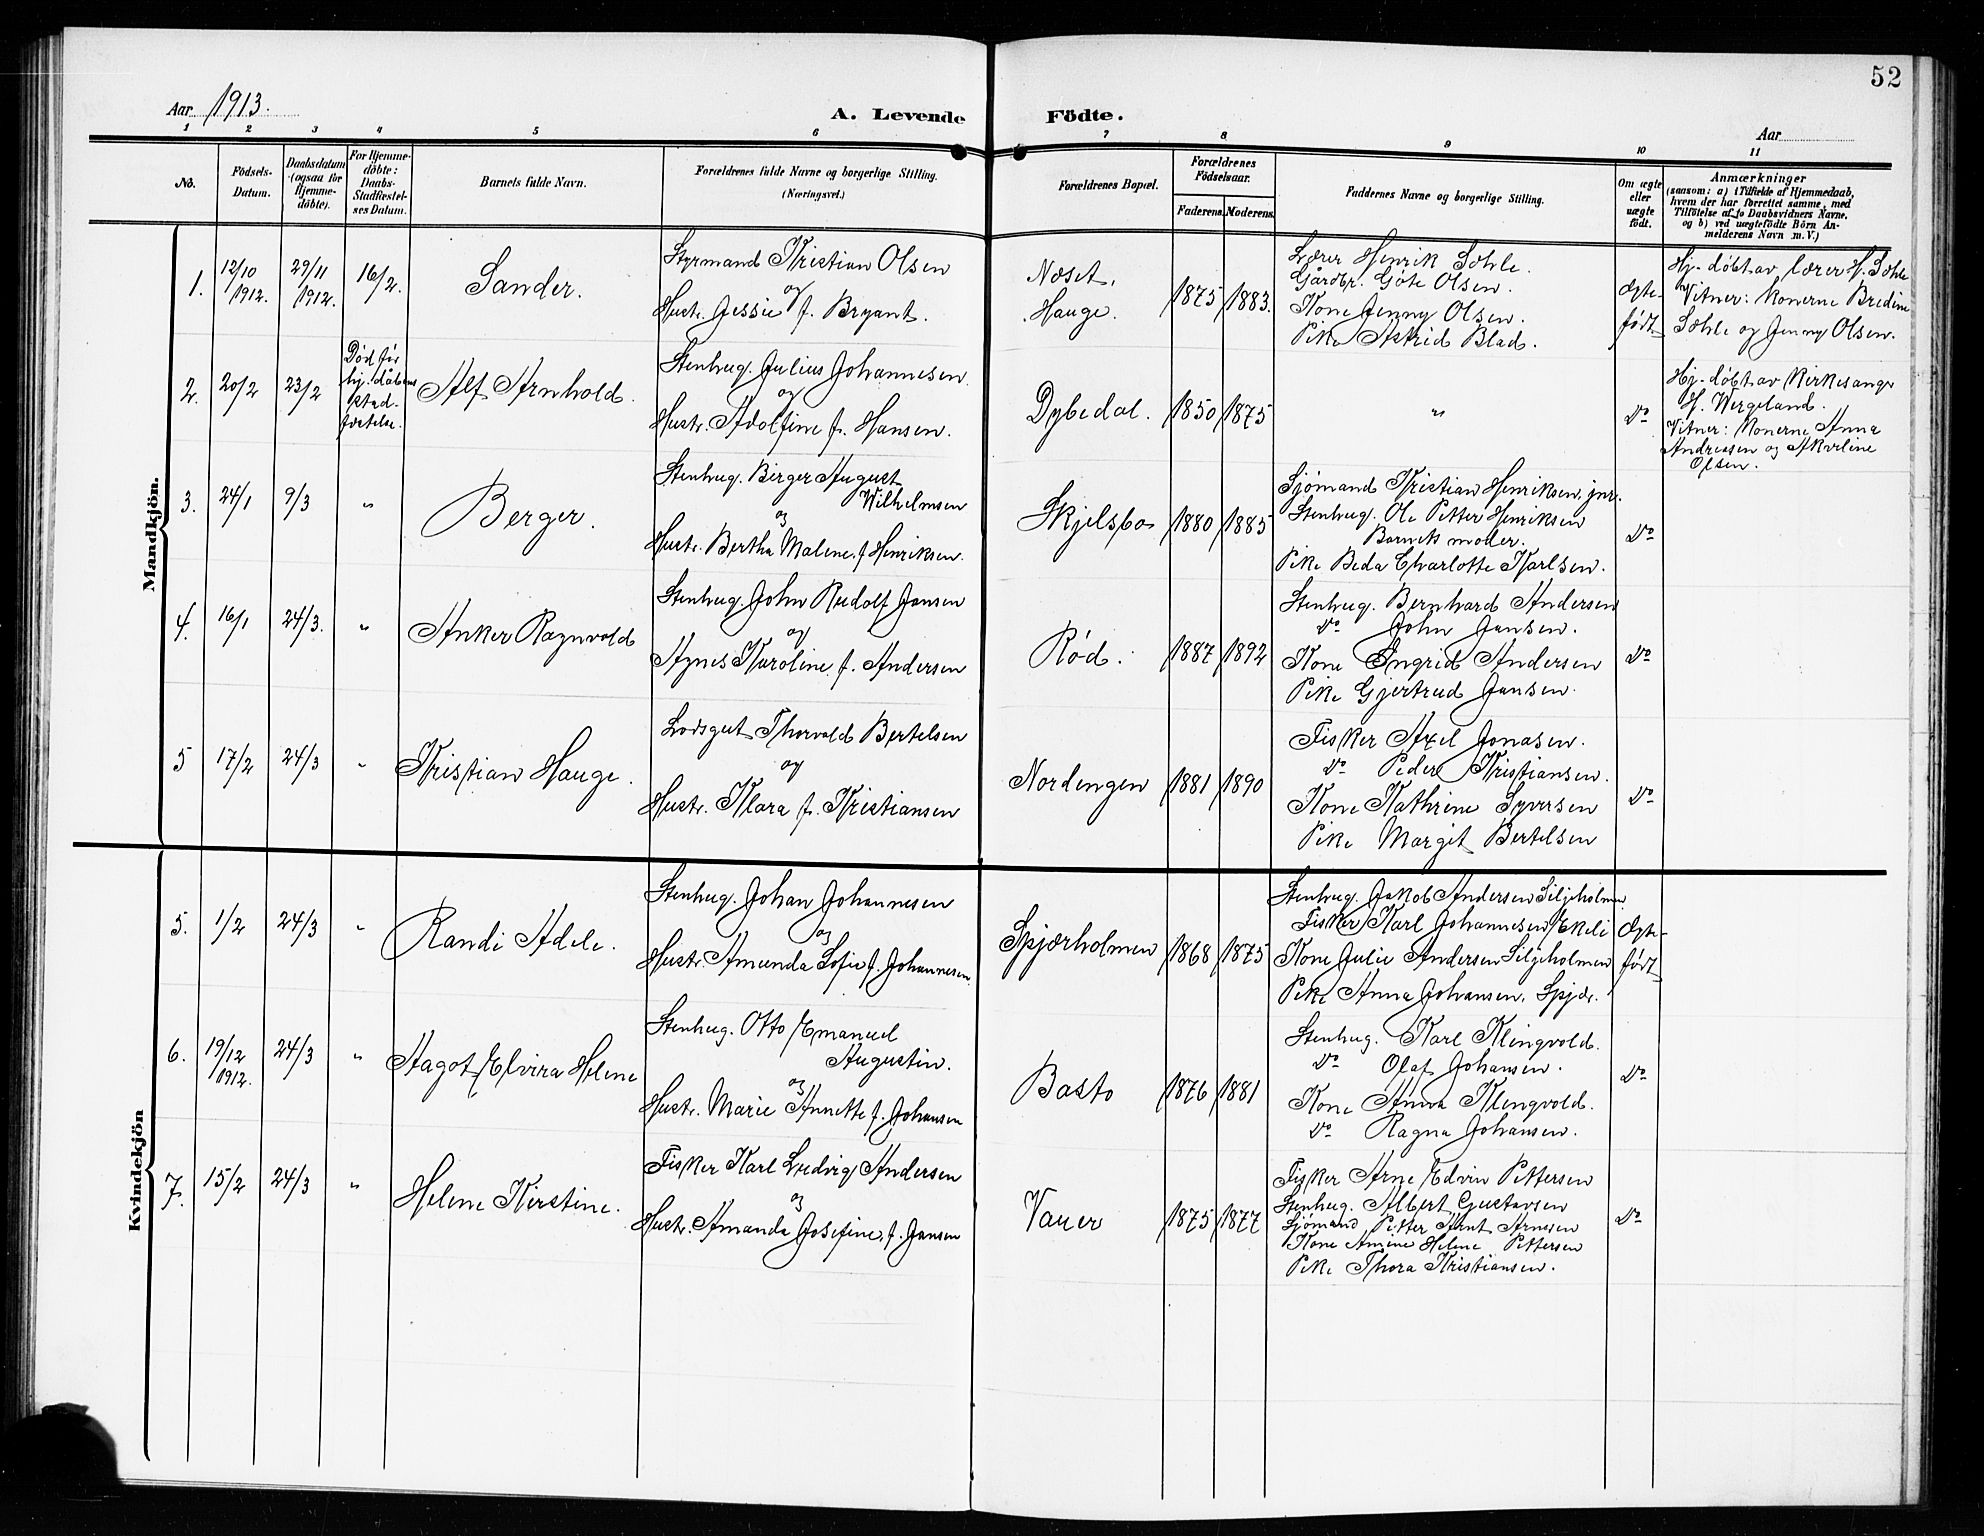 52
Aar 1913.
A. Levende Födte.
Aar
1 2 3 4 5 6 7 8 9 10 11
No.
Födsels-
Datum.
Daabsdatum
(ogsaa for
Hjemme-
döbte).
For Hjemme-
döbte:
Daabs-
Stadfæstel-
ses Datum.
Barnets fulde Navn.
Forældrenes fulde Navne og borgerlige Stilling.
(Næringsvei.)
Forældrenes Bopæl.
Forældrenes
Födselsaar.
Faderens.
Moderens.
Faddernes Navne og borgerlige Stilling.
Om ægte
eller
uægte
födt.
Anmærkninger
(saasom: a) i Tilfælde af Hjemmedaab,
hvem der har forrettet samme, med
Tilföielse af to Daabsvidners Navne,
og b) ved uægtefödte Börn An-
melderens Navn m. V.)
Mandkjön.
1.
12/10
1912.
29/11
1912.
16/2.
Sander.
Styrmand Kristian Olsen
og
Hustr. Jessie f. Bryant.
Næset,
Hauge.
1875
1883.
Lærer Henrik Sæhle.
Gårdbr. Göte Olsen.
Kone Jenny Olsen.
Pike Astrid Blad.
Ægte-
født
Hj.-døbt av lærer H. Sæhle
Vitner: Konerne Bredine
Sæhle og Jenny Olsen.
2.
20/2
23/2
Død før
hj. dåbens
stad-
fæstelse.
Alf Arnhold.
Stenhug. Julius Johannesen
og
Hustr. Adolfine f. Hansen.
Dybedal.
1850
1875
"
do
Hj.-døbt av Kirkesanger
H. Wergeland.
Vitner: Konerne Anna
Andresen og Akveline
Olsen.
3.
24/1
9/3
"
Berger.
Stenhug. Birger August
Wilhelmsen
og
Hustr. Bertha Malene f. Henriksen.
Skjelsbo
1880
1885
Sjømand Kristian Henriksen, jnr.
Stenhug. Ole Petter Henriksen
Barnets moder.
Pike Beda Charlotte Karlsen.
do
4.
16/1
24/3.
"
Anker Ragnvald
Stenhug. John Rudolf Jansen
og
Agnes Karoline f. Andersen
Rød.
1887
1892
Stenhug. Bernhard Andersen
do John Jansen.
Kone Ingrid Andersen
Pike Gjertrud Jansen.
do
5
17/2
24/3
"
Kristian Hauge.
Lodsgut Thorvald Bertelsen
og
Hustr. Klara f. Kristiansen
Nordengen
1881
1890
Fisker Axel Jonasen.
do Peder Kristiansen.
Kone Kathrine Syversen
Pike Margit Bertelsen
do
Kvindekjön
5.
1/2
24/3
"
Randi Adele.
Stenhug. Johan Johannesen
og
Hustr. Amunda Sofie f. Johannesen
Spjærholmen
1868
1875
Stenhug. Jakob Andersen Siljeholmen
Fisker Karl Johannesen Ekeli
Kone Julie Andersen Siljeholmen
Pike Anna Johansen, Spjær.
Ægte-
født
6.
19/12
1912.
24/3
"
Aagot Elvira Helene
Stenhug. Otto Emanuel
Augustin.
og
Hustr. Marie Annette f. Johansen
Basto
1876
1881
Stenhug. Karl Klingvold.
do Olaf Johansen.
Kone Anna Klingvold.
do Ragna Johansen.
do
7.
15/2
24/3
"
Helene Kirstine.
Fisker Karl Ludvig Andersen
og
Hustr. Amanda Josefine, f. Jansen
Vauer
1875
1877
Fisker Arne Edvin Pettersen
Stenhug. Albert Gustavsen
Sjømand Petter Arnt Arnesen
Kone Amine Helene Pettersen
Pike Thora Kristiansen.
do